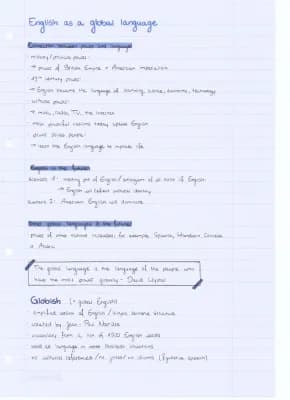 English as a global language
Connection between power and language
military/political power:
→ power of British Empire + American imperialism
19th century power:
→ English became the language of learning, science, economics, technology
cultural power:
→ music, radio, TV, the internet
most powerful nations today speak English
power drives people:
→ learn the English language to improve life
English in the future
Scenario 1: melting pot of English/emergence of all kinds of English
→ English will reflect world's diversity
Scenario 2: American English will dominate
Other global languages in the future
power of other nations increases, for example, Spanish, Mandarin Chinese
or Arabic
"The global language is the language of the people who
have the most power generally" - David Crystal
Globish (= global English)
simplified version of English / simple sentence structure
created by Jean-Paul Nerrière
vocabulary from a list of 1500 English words
used as language in most business situations
no cultural references/no jokes/no idioms (figurative speech)